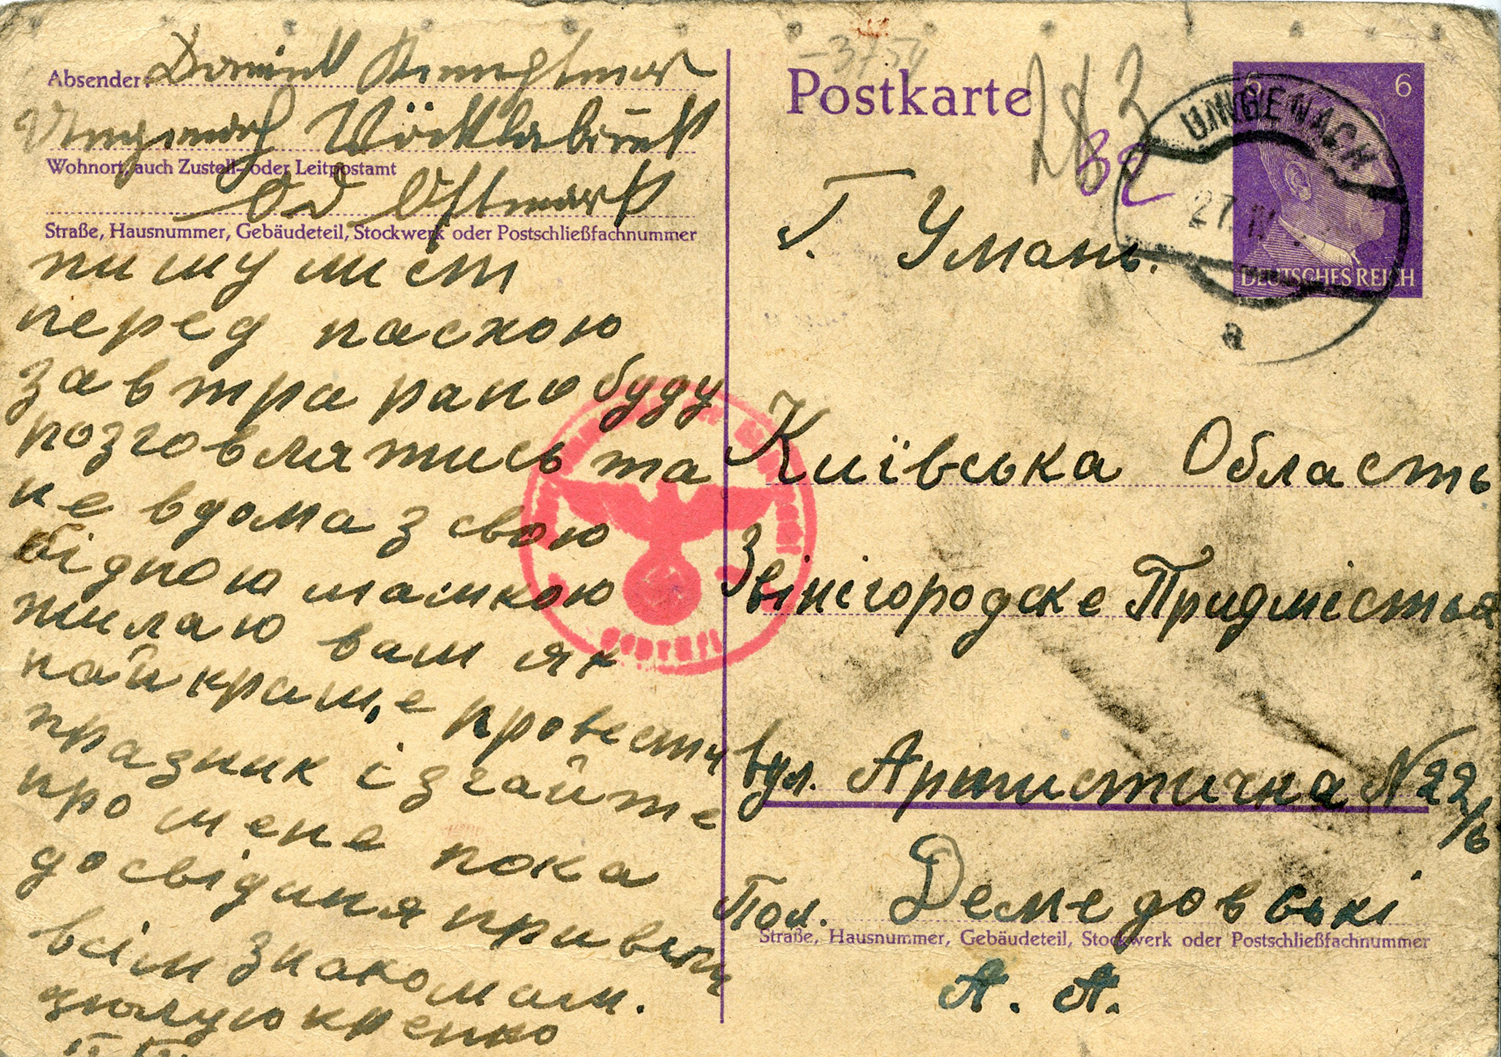 Absender:
Wohnort, auch Zustell- oder Leitpostamt
Straße, Hausnummer, Gebäudeteil, Stockwerk oder Postschließfachnummer
пишу лист
перед паскою
завтра рано буду
розговлятись та
не вдома з свою
бідною мамкою
жилаю вам як
найкраще провести
празник і згайте
про мене пока
досвіданя привет
всім знакомам.
цюлую крепко
Postkarte
6
6
DEUTSCHES REICH
UNGENACH
27
a
Г. Умань.
Київська Область
Звінігородске Придмістья
вул. Артистична № 22/6
Пол. Демедовські
Straße, Hausnummer, Gebäudeteil, Stockwerk oder Postschließfachnummer
А. А.